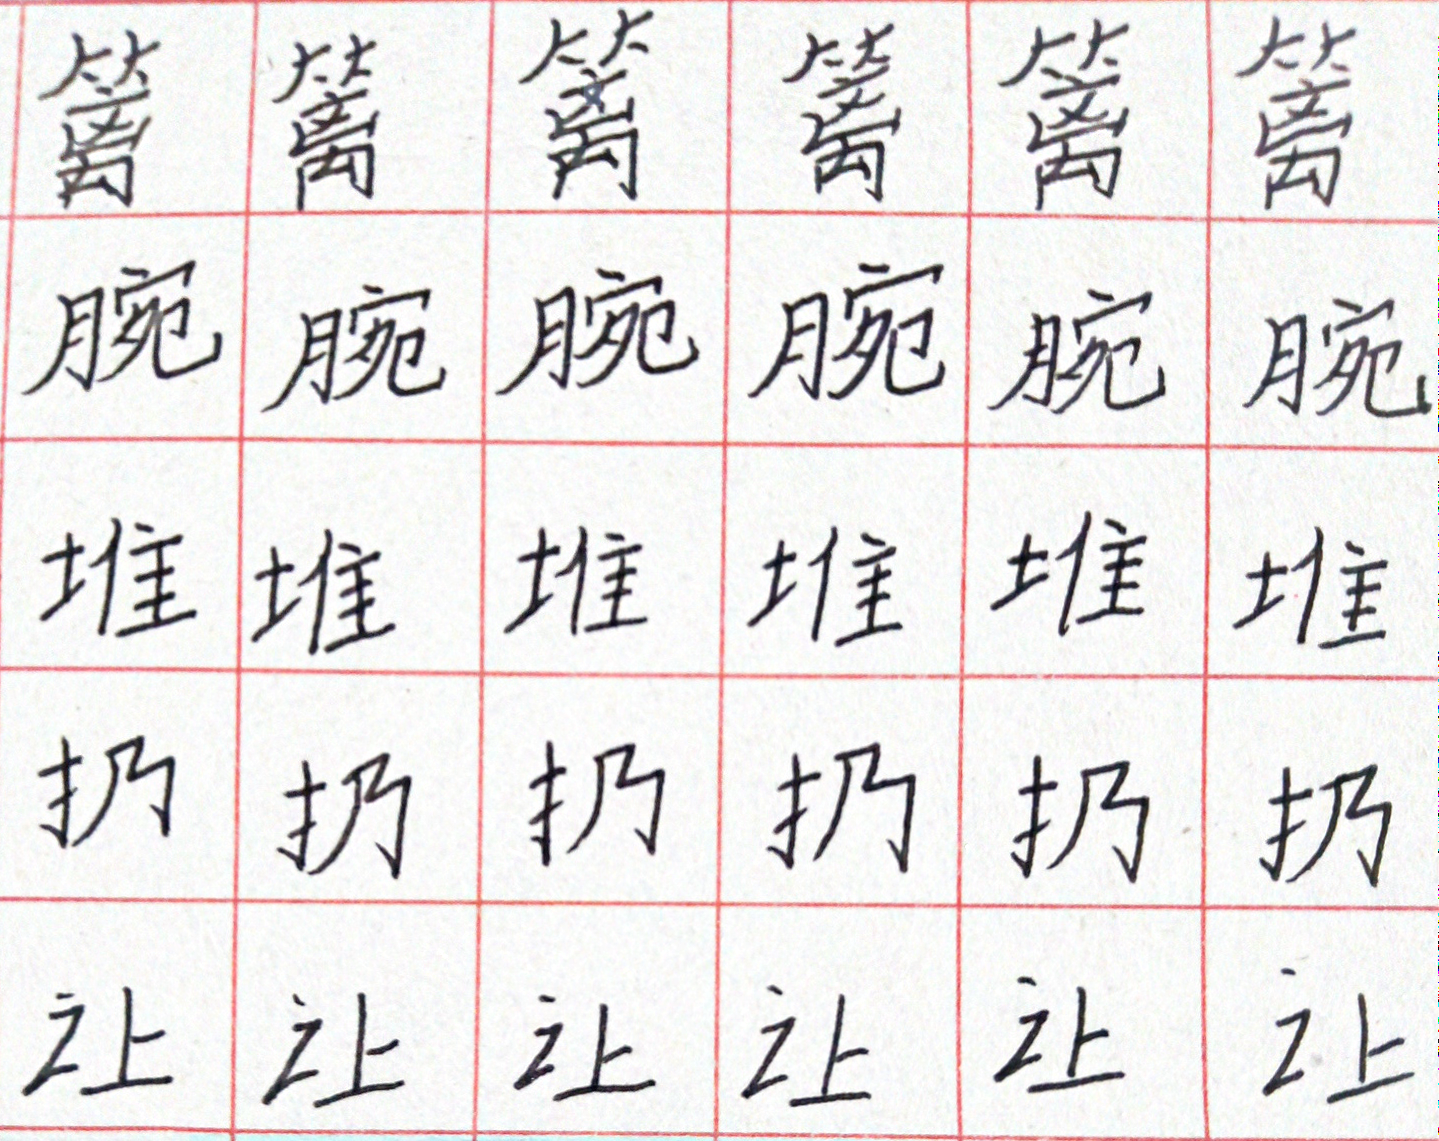 篱篱篱篱篱篱
腕腕腕腕腕腕
堆堆堆堆堆堆
扔扔扔扔扔扔
让让让让让让